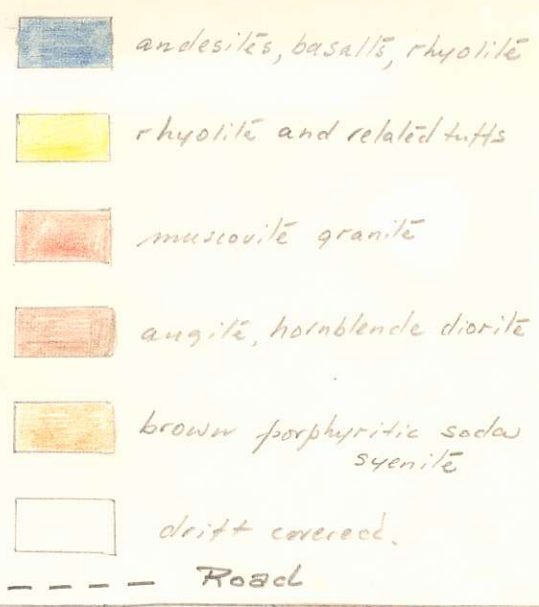 andesites, basalts, rhyolite
rhyolite and related tuffs
muscovite granite
augite, hornblende diorite
brown porphyritic soda
syenite
drift covered.
Road